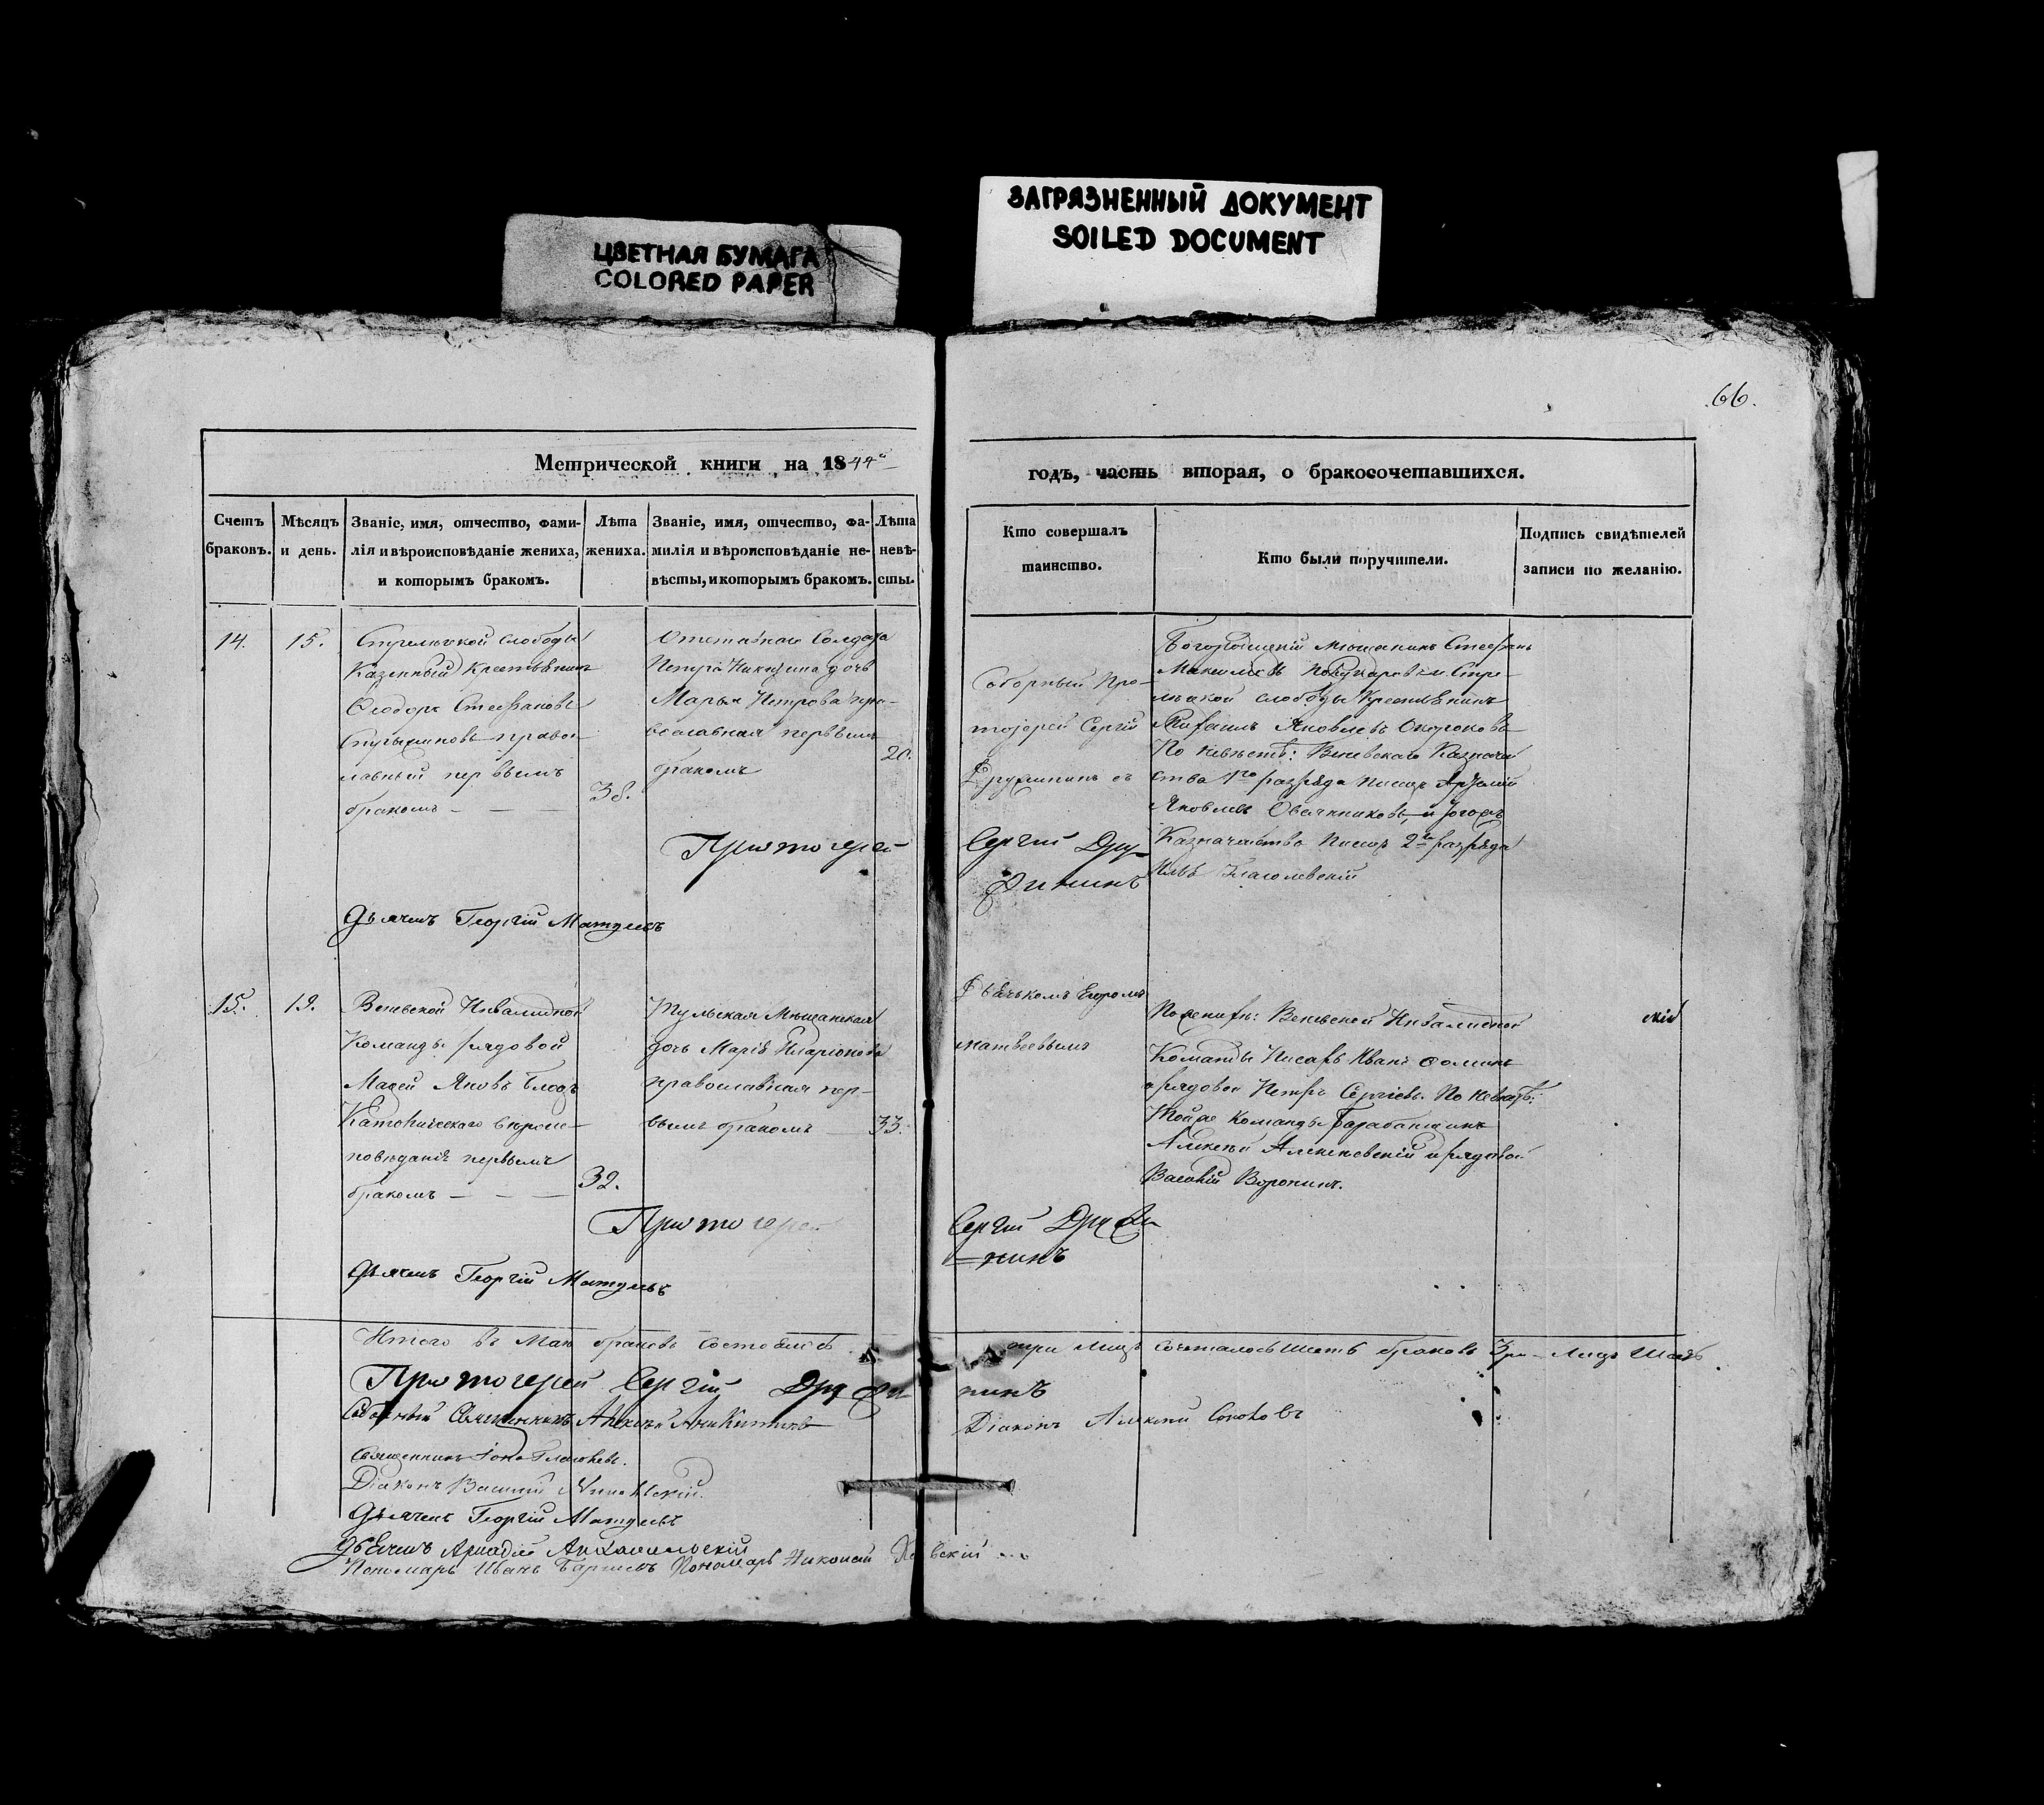 ЗАГРЯЗНЕННЫЙ ДОКУМЕНТ
SOILED DOCUMENT
ЦВЕТНАЯ БУМАГА
COLORED PAPER
66.
Метрической книги на 1844й
годъ, часть вторая, о бракосочетавшихся.
Счетъ браковъ.
Мѣсяцъ и день.
Званіе, имя, отчество, фами-
лія и вѣроисповѣданіе жениха,
и которымъ бракомъ.
Лѣта
жениха.
Званіе, имя, отчество, фа-
милія и вѣроисповѣданіе не-
вѣсты, и которымъ бракомъ.
Лѣта
невѣ-
сты.
Кто совершалъ
таинство.
Кто были поручители.
Подпись свидѣтелей
записи по желанію.
14.
15.
Стрѣлецкой слободы
Казенный крестьянинъ
Ѳеодоръ Стефановъ
правос
лавный первымъ
бракомъ
38.
Отставнаго Солдата
Петра Никитина дочь
Марья Петрова пра-
вославная первымъ
бракомъ
20.
Соборный Про-
тоіерей Сергій
Дружининъ съ
Богородицкій мѣщанинъ Стефанъ
Стрѣ-
лецкой слободы Крестьянинъ
Михаилъ Яковлевъ Окороковъ
По невѣстѣ: Веневскаго Казначей
ства 1го разряда Писецъ
Яковлевъ Овсянниковъ, и тогожъ
Казначейства Писецъ 2го разряда
Протоіерей
Сергій Дру-
жининъ
Дьячекъ Георгій
15.
19.
Веневской Инвалидной
Команды рядовой
Яновъ
Католическаго вѣроис-
повѣданія первымъ
бракомъ
32.
Тульская Мѣщанская
дочь Марія Иларіонова
православная пер-
вымъ бракомъ
33.
Дьячкомъ Егоромъ
матвеевымъ
По жениху: Веневской Инвалидной
Команды Писарь Иванъ Ѳоминъ
и рядовой Петръ Сергіевъ. По невѣстѣ:
Тойже команды Барабанщикъ
Алексѣй и рядовой
Василій Воронинъ.
скій
Протоіерей
Сергій Дружи-
нинъ
Дьячекъ Георгій
Итого въ Маи браковъ состоялось
три лицъ сочеталось шесть браковъ Три лицъ Шесть
Протоіерей Сергій Дружи-
нинъ
Соборный Священникъ Алексѣй
Діаконъ Алексѣй Соколовъ
Священникъ Іона
Діаконъ Василій
Дьячекъ Георгій
Дьячекъ Аркадій
Пономарь Иванъ Пономарь Николай